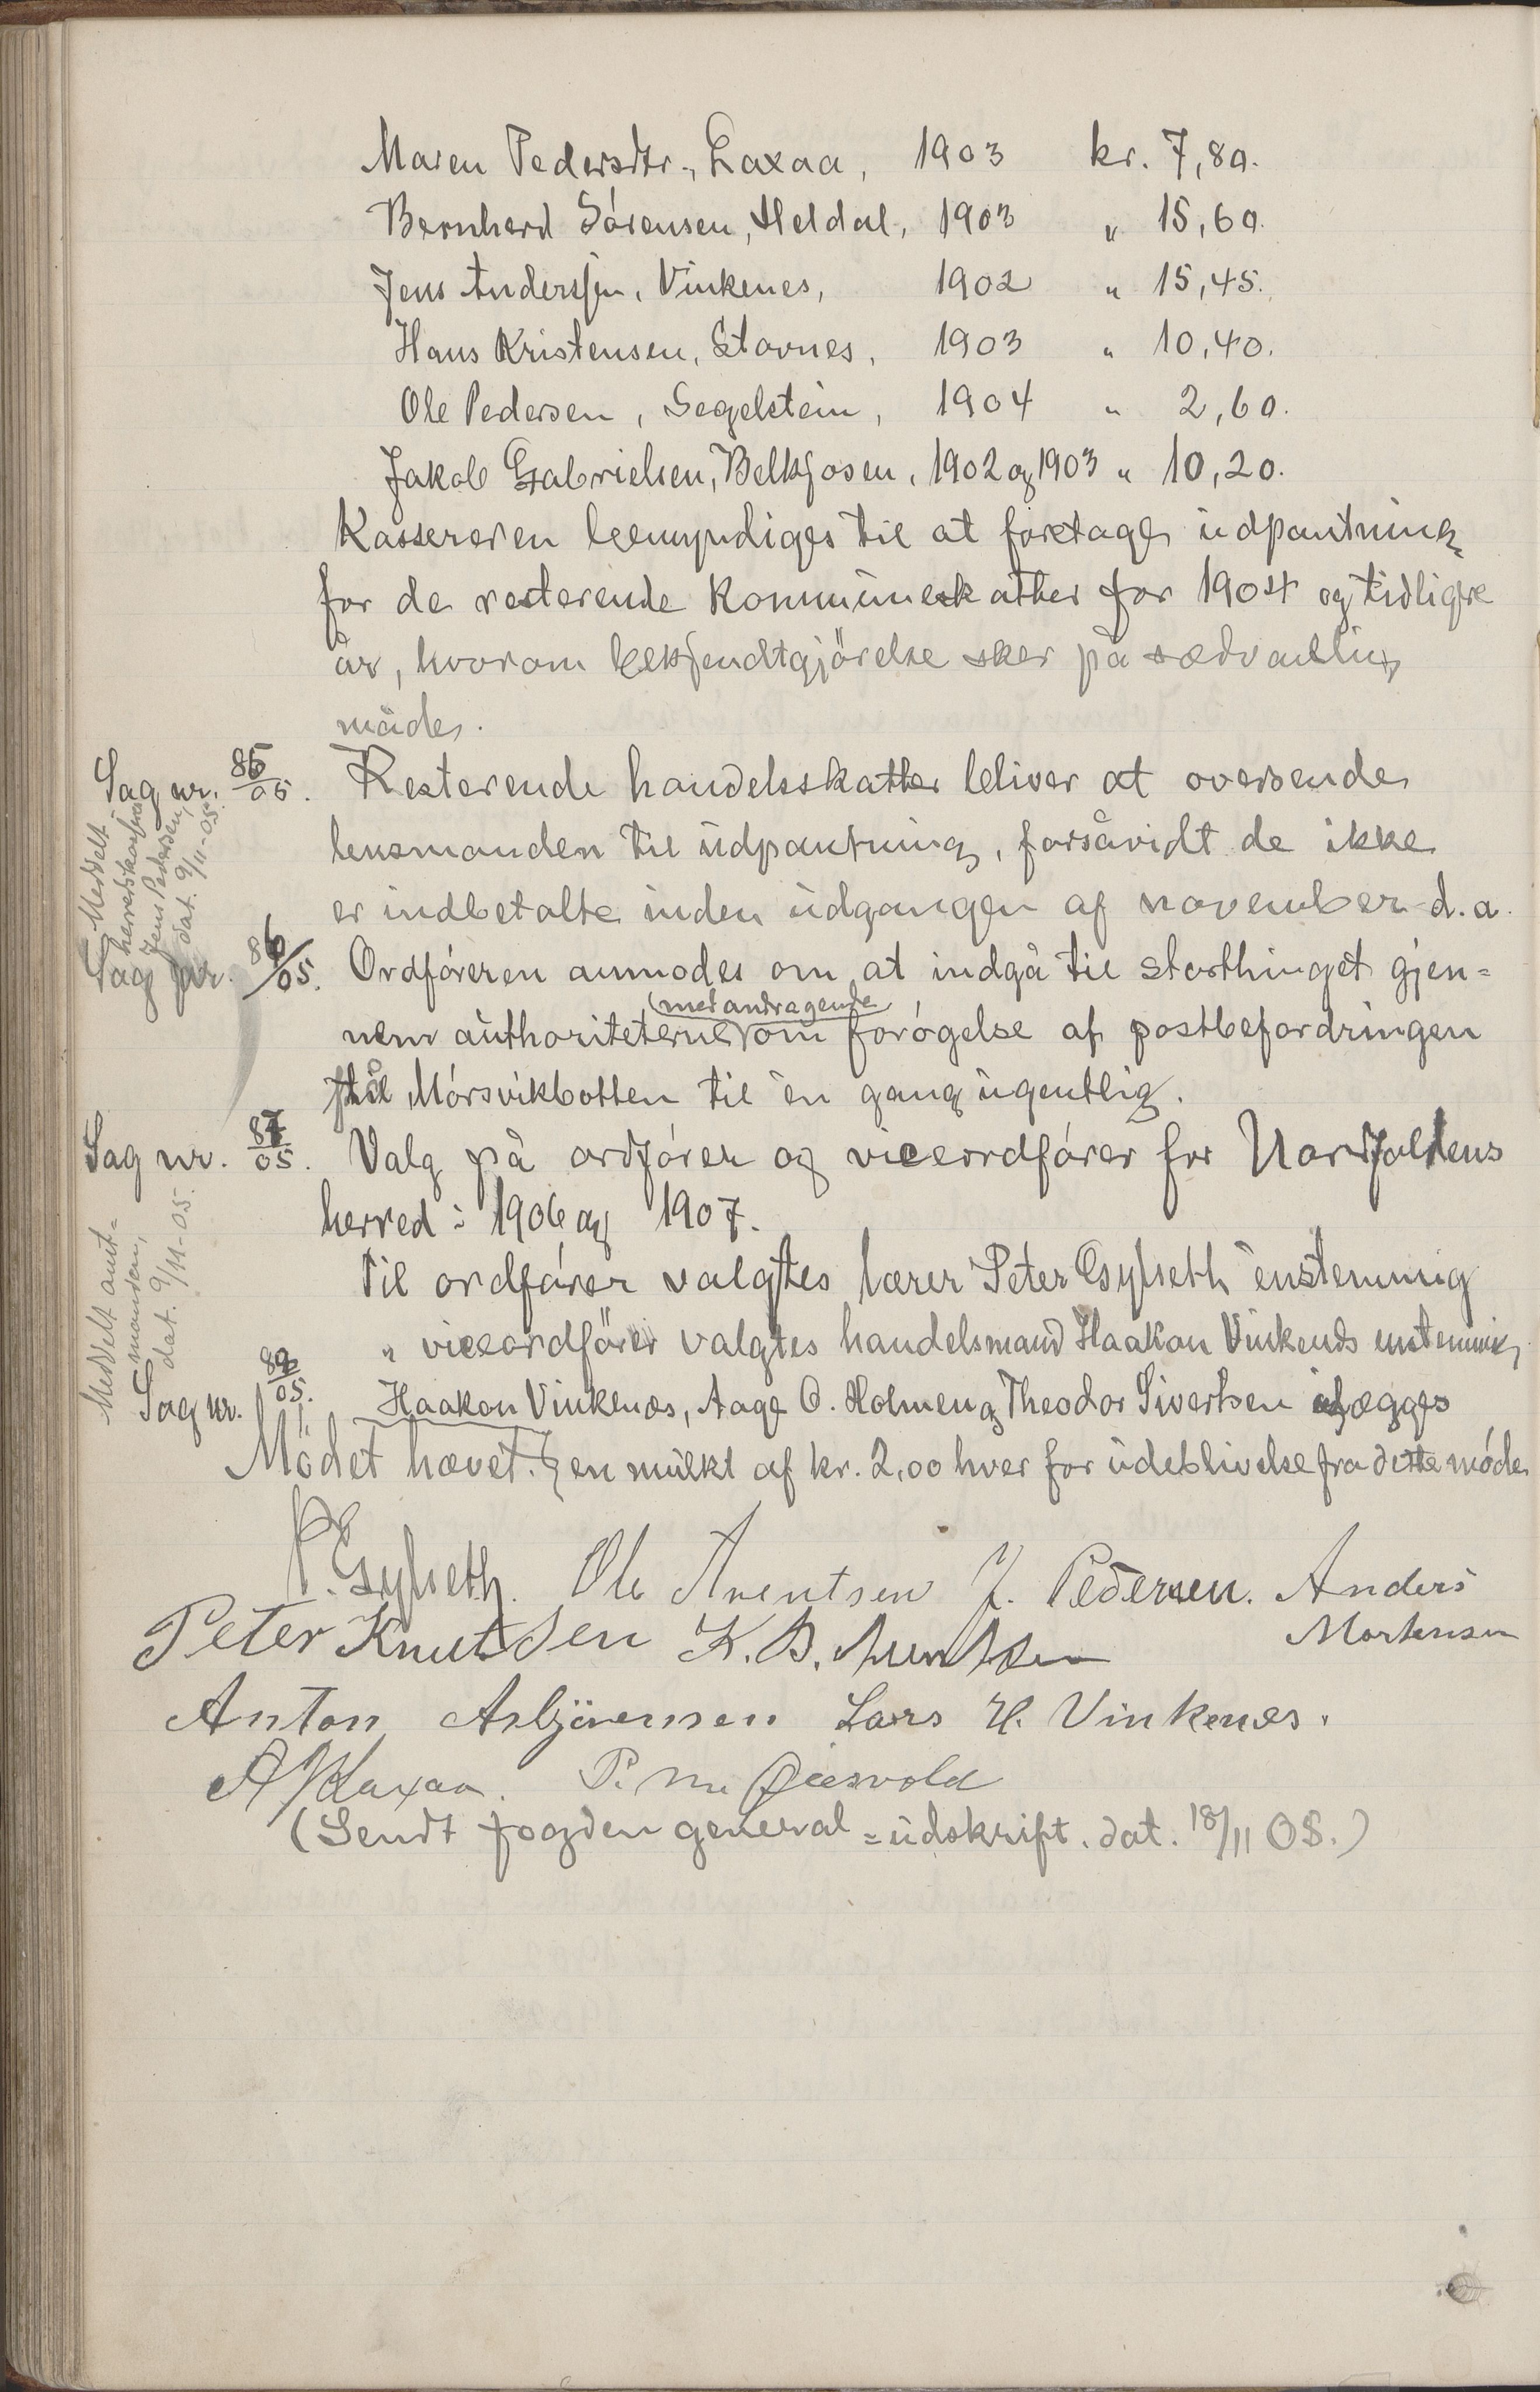 Maren Pedersdtr., Laxaa, 1903 kr. 7,80.
Bernhard Sørensen, Heldal, 1903 " 15,60.
Jens Anderssen, Vinkenes, 1902 " 15,45.
Hans Kristensen, Stavnes, 1903 " 10,40.
Ole Pedersen, Segelstein, 1904 " 2,60.
Jakob Gabrielsen, Belkjosen, 1902 og 1903 " 10,20.
Kassereren bemyndiges til at foretage udpantning
for de resterende kommuneskatter for 1904 og tidligere
år, hvorom bekjendtgjörelse sker på sædvanlig
måde.
Sag nr. 85/05. Resterende handelsskatter bliver at oversende
lensmanden til udpantning, forsåvidt de ikke
er indbetalte inden udgangen af november d.a.
Meddelt
Jens Pedersen,
dat. 9/11-05.
Sag nr. 86/05. Ordføreren anmodes om at indgå til storthinget gjen=
(med andragende
nem authoriteterne om forøgelse af postbefordringen
på Mørsvikbotten til én gang ugentlig.
Sag nr. 87/05. Valg på ordfører og viceordfører for Nordfoldens
herred i 1906 og 1907.
Til ordfører valgtes lærer Peter Esylseth énstemmig
" viceordfører valgtes handelsmand Haakon Vinkenes enstemmig,
Meddelt amt=
manden,
dat. 9/11-05.
Sag nr. 88/05. Haakon Vinkenæs, Aage O. Holmen og Theodor Sivertsen ilægges
Mödet hævet. en mulkt af kr. 2,00 hver for udeblivelse fra dette møde
P. Esylseth. Ole Arentsen J. Pedersen. Anders
Mortensen
Peter Knutsen K. B. Arentsen
Anton Asbjörnsen Lars H. Vinkenæs.
A Laxaa. P. M.
(Sendt fogden general=udskrift. dat. 18/11 05.)